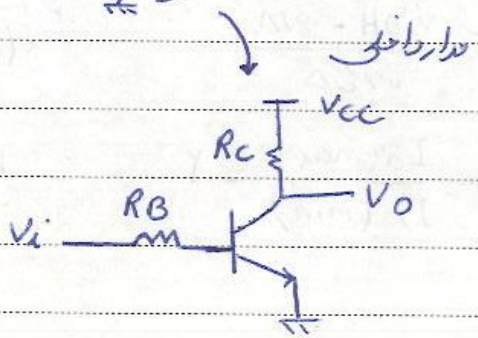 مدار داخلی
VCC
RC
VO
RB
Vi